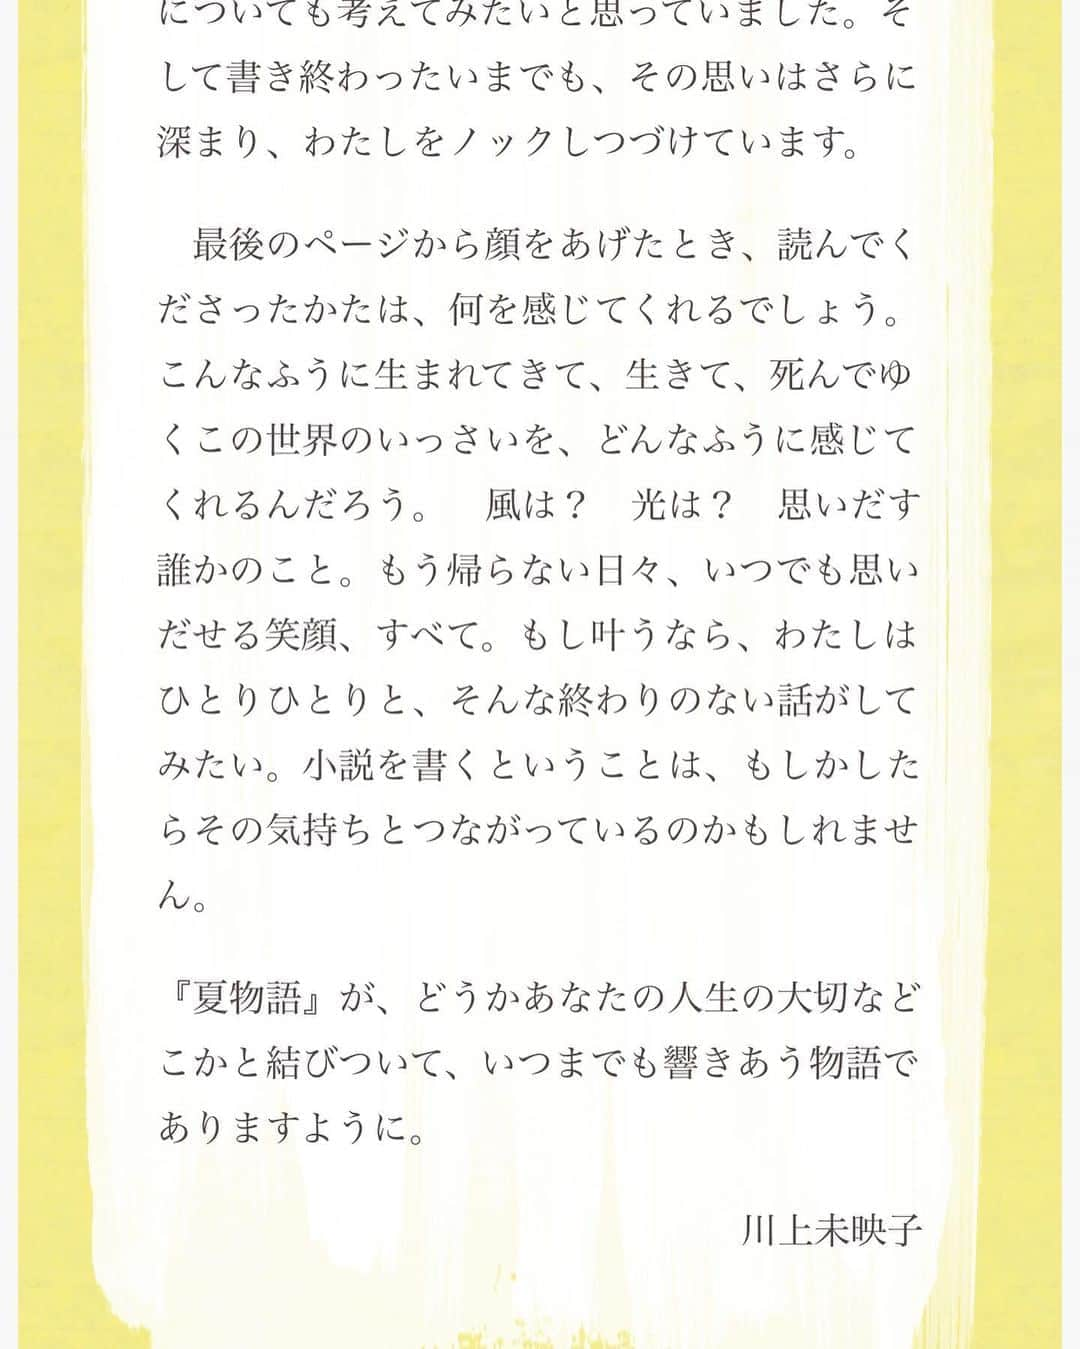 についても考えてみたいと思っていました。そ
して書き終わったいまでも、その思いはさらに
深まり、わたしをノックしつづけています。
　最後のページから顔をあげたとき、読んでく
ださったかたは、何を感じてくれるでしょう。
こんなふうに生まれてきて、生きて、死んでゆ
くこの世界のいっさいを、どんなふうに感じて
くれるんだろう。　風は？　光は？　思いだす
誰かのこと。もう帰らない日々、いつでも思い
だせる笑顔、すべて。もし叶うなら、わたしは
ひとりひとりと、そんな終わりのない話がして
みたい。小説を書くということは、もしかした
らその気持ちとつながっているのかもしれませ
ん。
『夏物語』が、どうかあなたの人生の大切など
こかと結びついて、いつまでも響きあう物語で
ありますように。
川上未映子